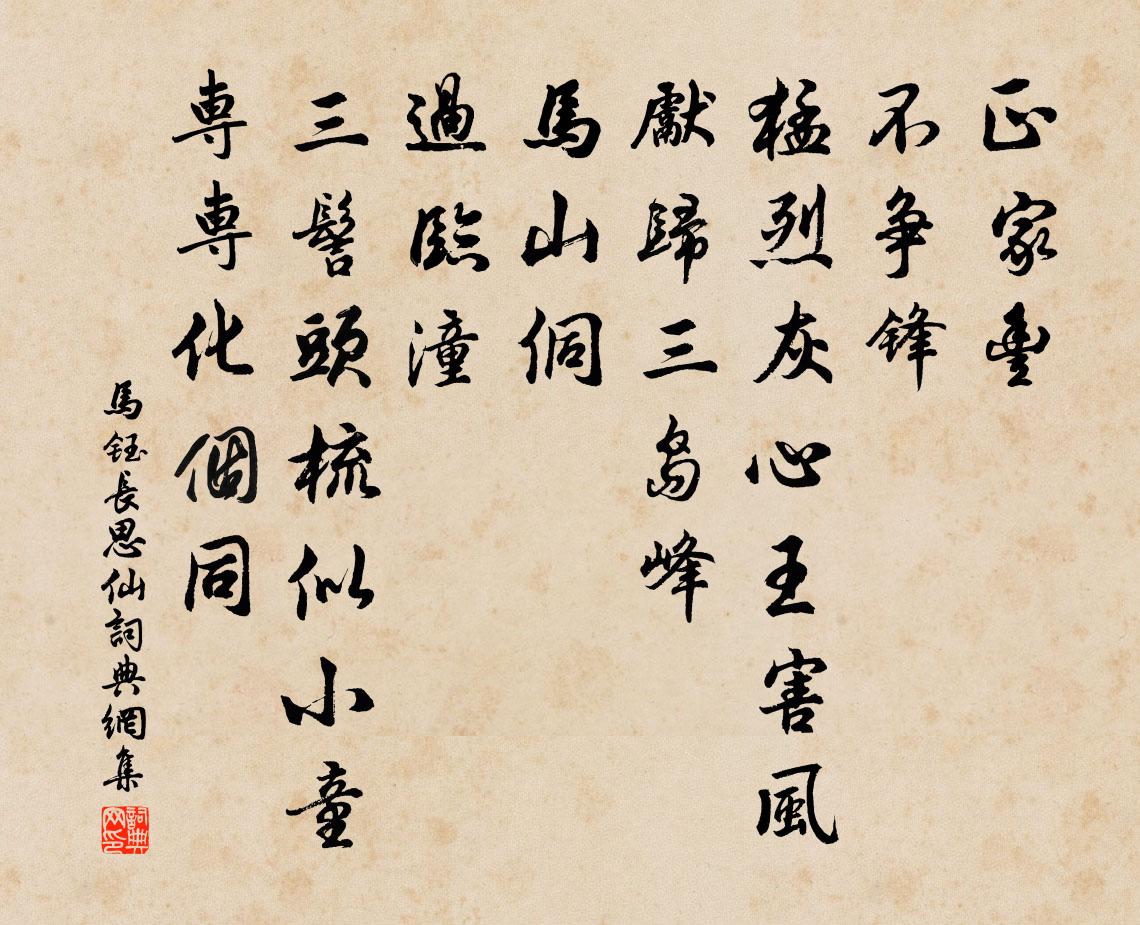 正家豐
不争锋
猛烈灰心王害風
獻歸三島峰
馬山侗
過臨潼
三髻頭梳似小童
専専化個同
馬鈺長思仙詞典網集
詞典网印